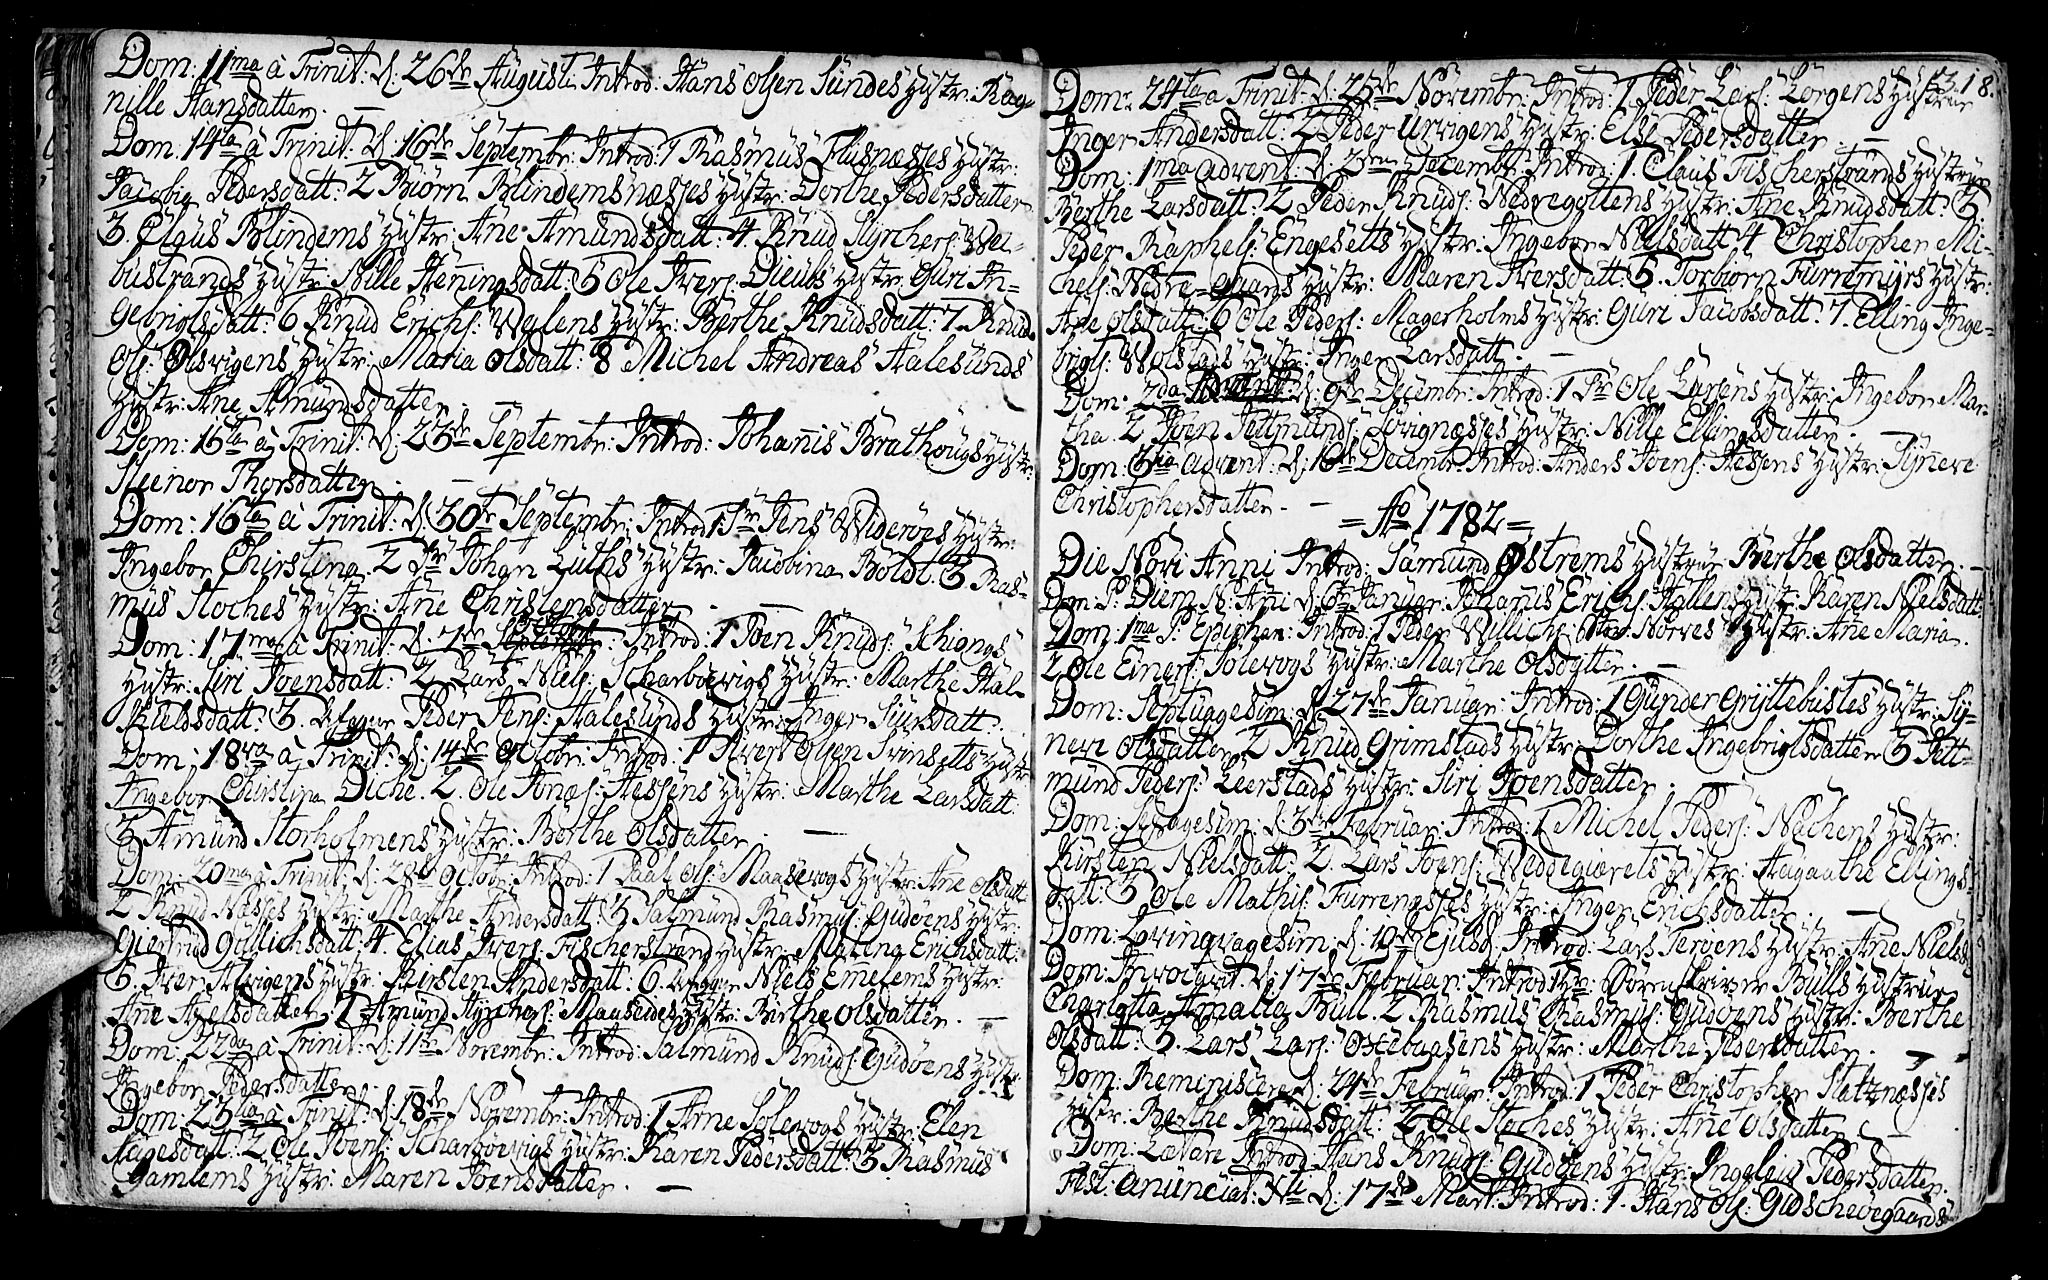 Dom: 11ma à Trinit: d: 26de August: Introd: Hans Olsen Sundes Hustr: Rag-
nille Hansdatter. —
Dom: 14ta à Trinit: d: 16de Septembr: Introd: 1 Rasmus Flisnæsses Hustr:
Jacobia Pedersdatt: 2 Biørn Blindemsnæsses Hustr: Dorthe Pedersdatter
3. Elous Blindems Hustr: Ane Amundsdatt: 4 Knud Styrchers: Wei-
bustrands Hustr: Nille Henningsdatt: 5 Ole Ivers: Hustr: Guri In-
gebrigtsdatt: 6 Knud Erichs: Walens Hustr: Berthe Knudsdatt: 7. Knud
Ols: Olsvigens Hustr: Maria Olsdatt: 8 Michel Andreas Aalesunds
Hustr: Ane Amundsdatter. —
Dom: 15ta à Trinit: d: 23de Septembr: Introd: Johanis Brathougs Hustr:
Steenor Thorsdatter. —
Dom: 16ta à Trinit: d: 30te Septembr: Introd: 1 Sr Jens Widerøes Hustr:
Ingebor Chirstina 2 Sr Johan Luths Hustr: Jacobina Boldt. 3 Ras-
mus Stoches Hustr: Ane Christensdatter. —
Dom: 17ma à Trinit: d: 7de Octobr: Introd: 1 Joen Knuds: Schiongs
Hustr: Siri Joensdatt: 2 Lars Niels: Scharbøevigs Hustr: Marthe Hal-
kieldsdatt: 3. Peder Jens: Aalesunds Hustr: Inger Siursdatt.
Dom: 18va à Trinit: d: 14de Octobr: Introd: 1 Iver Olsen Hustr:
Ingebor Chirstina Diche. 2. Ole Jonæs: Hessens Hustr: Marthe Larsdatt:
3 Amund Storholmens Hustr: Berthe Olsdatter. —
Dom: 20ma à Trinit: d: 28de Octobr: Introd: 1 Paal Ols: Maasevogs Hustr: Ane Olsdatt:
2 Knud Næsses Hustr: Marthe Andersdatt: 3 Salmund Rasmus: Gudøens Hustr:
Giertrud Gullichsdatt: 4. Elias Ivers: Fischerstrand Hustr: Malena Erichsdatt:
5. Iver Hustr: Kirsten Andersdatt: 6. Niels Emelems Hustr:
Ane Axelsdatter. 7 Amund Maaseides Hustr: Birthe Olsdatter. —
Dom: 22da à Trinit: d: 11te Novembr: Introd: Salmund Knuds: Gudøens Hustr:
Ingebor Pedersdatter. —
Dom: 23tia à Trinit: d: 18de Novembr: Introd: 1 Arne Solevogs Hustr: Elen
Aagesdatt: 2 Ole Joens: Scharbøevigs Hustr: Karen Pedersdatt: 3 Rasmus
Gamlems Hustr: Maren Joensdatter. —
18.
Dom: 24ta à Trinit: d: 25de Novembr: Introd: 1 Peder Lars: Hustrue
Inger Andersdatt: 2 Peder Urvigens Hustr: Else Pedersdatter. —
Dom: 1ma Advent: d: 2den Decembr: Introd: 1. Claus Fischerstrands Hustrue
Berthe Larsdatt: 2 Peder Knuds: Hustr: Ane Knudsdatt: 3.
Peder Raphels: Engesetts Hustr: Ingebor Nielsdatt: 4 Christopher Mi-
chels: Nedre-gaards Hustr: Maren Iversdatt: 5. Torbiørn Furremyrs Hustr:
Ane Olsdatt: 6 Ole Peders: Magerholms Hustr: Guri Jacobsdatt: 7. Elling Inge-
brigts: Wolstads Hustr: Inger Larsdatt. —
Dom: 2da Advent: d: 9de Decembr: Introd: 1 Sr Ole Larsens Hustr: Ingebor Mar-
tha. 2 Joen Pettmunds: Hustr: Nille Ellingsdatter. —
Dom: 3tia Advent: d: 16de Decembr: Introd: Anders Joens: Hessens Hustr: Synneve
Christophersdatter. —
= Ao 1782 =
Die Novi Anni Introd: Samund Østrems Hustrue Berthe Olsdatter. —
Dom: P: Diem N: Ani d: 6te Januar: Johanis Erichs: Hallens Hustr: Karen Nielsdatt:
Dom: 1ma P: Epiphan: Introd: 1 Peder Nørves Hustr: Ane Maria.
2. Ole Einers: Solevogs Hustr: Marthe Olsdatter. —
Dom: Septuagesim: d: 27de Januar: Introd: 1 Gunder Gryttebustes Hustr: Sy-
nevi Olsdatter 2 Knud Grimstads Hustr: Dorthe Ingebrigtsdatter 3 Pett-
mund Peders: Leerstads Hustr: Siri Joensdatter. —
Dom: Sexagesim: d: 3de Februar: Introd: 1 Michel Peders: Nachens Hustr:
Kirsten Nielsdatt: 2. Lars Joens: Weddegierets Hustr: Aagaathe Ellings
datt: 3 Ole Mathis: Furrenæsses Hustr: Inger Erichsdatter. —
Dom: Qvinqvagesim: d: 10de Ejusd: Introd: Lars Terøens Hustr: Ane Nielsd:
Dom: Invocavit: d: 17de Februar: Introd: 1 Hr: Sørenskriver Bulls Hustrue
Charlotta Amalia Bull. 2 Rasmus Rasmus: Gudøens Hustr: Berthe
Olsdatt: 3. Lars Lars: Hustr: Marthe Pedersdatter. —
Dom: Reminiscere d: 24de Februar: Introd: 1 Peder Christopher Slatznæsses
Hustr: Berthe Knudsdatt: 2 Ole Stoches Hustr: Ane Olsdatter. —
Dom: Lætare Introd: Hans Knuds: Gudøens Hustr: Ingeleiv Pedersdatter.
Fest: Anunciat: d: 17de Mart: Introd: 1. Hans Ols: Gudschevegaards